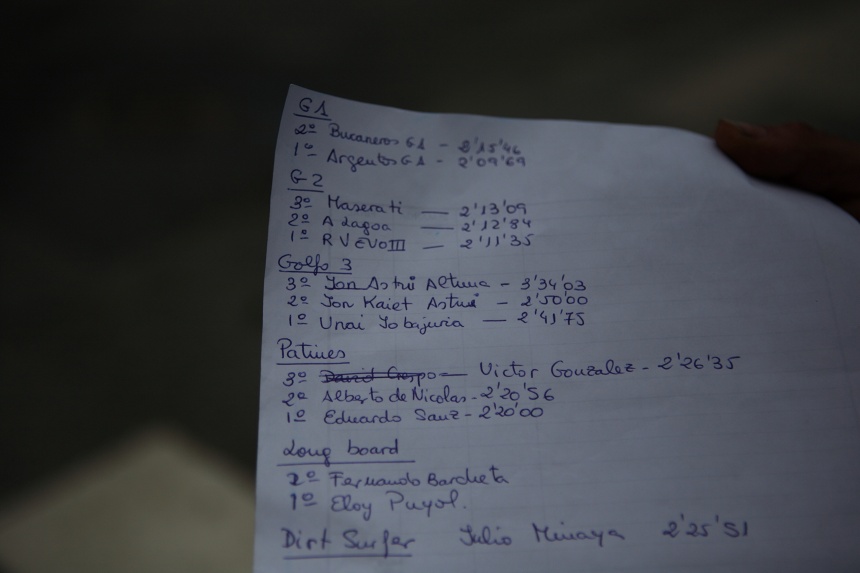 G1
2º Bucaneros G1 - 2'15'46
1º Argentos G1 - 2'09'69
G2
3º Maserati — 2'13'09
2º A Lagoa — 2'12'84
1º RV EVO III — 2'11'35
Golfo 3
3º Jon Astui Altuna - 3'34'03
2º Jon Kaiet Astui - 2'50'00
1º Unai - 2'41'75
Patines
3º David Crespo — Victor Gonzalez - 2'26'35
2º Alberto de Nicolas - 2'20'56
1º Eduardo Sanz - 2'20'00
Long board
2º Fernando Barcheta
1º Eloy Puyol.
Dirt Surfer Julio Minaya 2'25'51